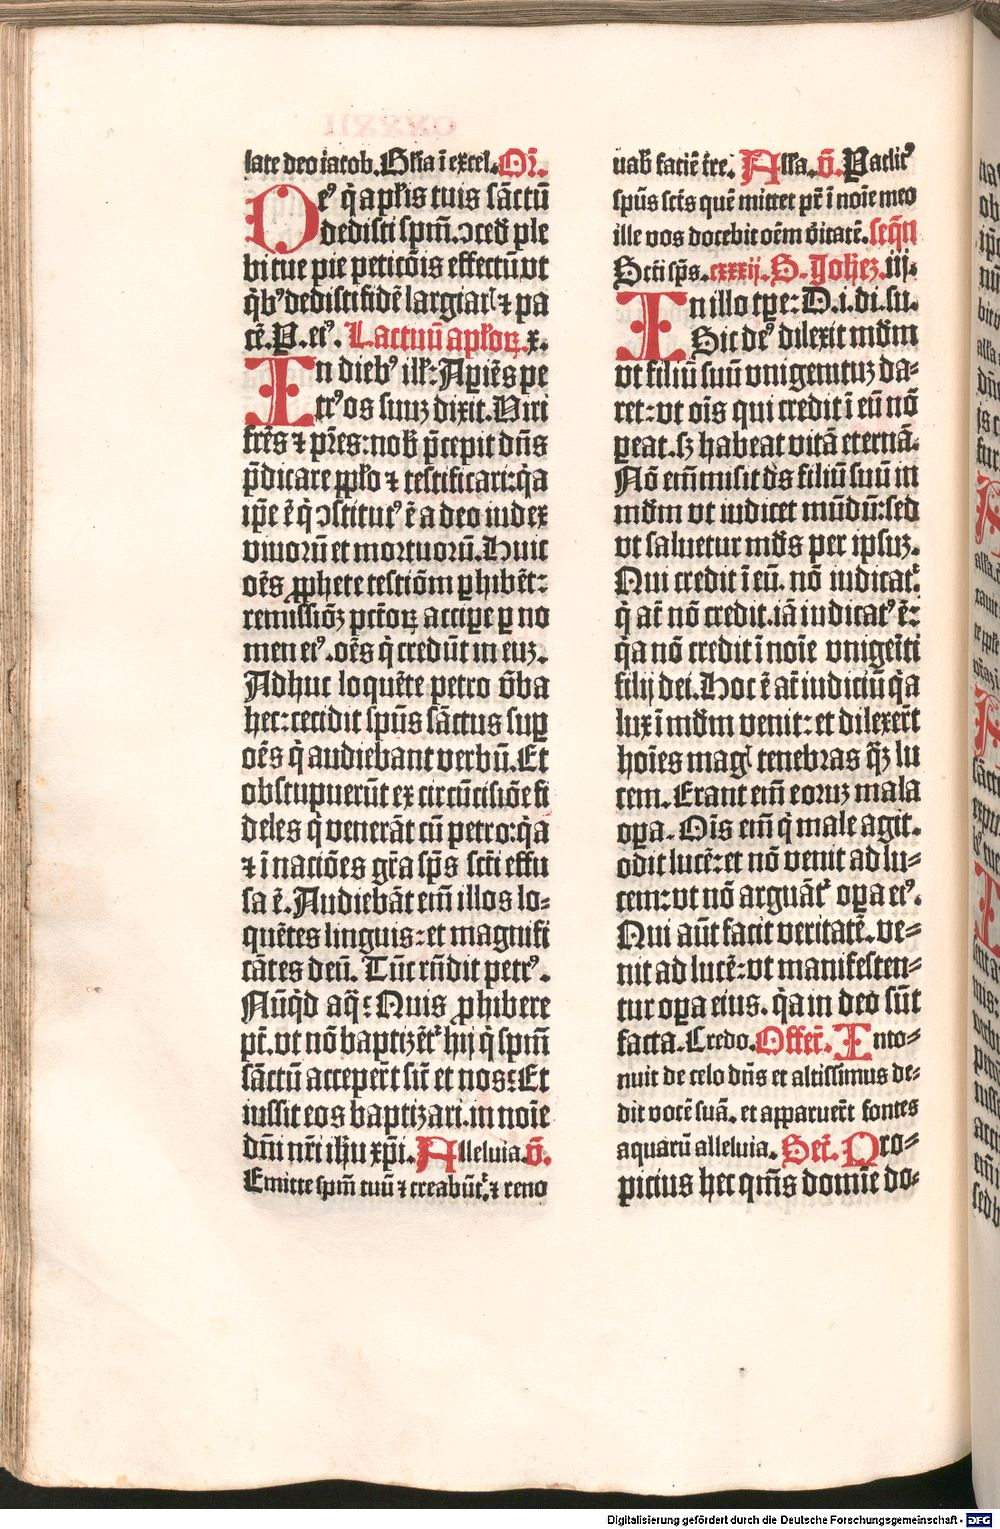 late deo iacob. Gl̄ia ī excel. Or̄.
Deꝰ q̄ apl̄is tuis sāctū
dedisti spm̄. ꝯced̄ ple
bi tue pie peticōis effectū vt
q̄bꝰ dedisti fidē largiarꝭ ⁊ pa
cē. P. eiꝰ. L. actuū apl̄oꝝ. x.
In diebꝰ ill̄: Apiēs pe
trꝰ os suuꝫ dixit. Viri
fr̄es ⁊ pr̄es: nob̄ p̄cepit dn̄s
p̄dicare ppl̄o ⁊ testificari: q̄a
ip̄e ē q̄ ꝯstitutꝰ ē a deo iudex
viuorū et mortuorū. Huic
oēs ꝓphete testiōm ꝑhibēt:
remissiōꝫ pctoꝝ accipe ꝑ no
men eiꝰ. oēs q̄ credūt in euꝫ.
Adhuc loquēte petro v̄ba
hec: cecidit spūs sāctus suꝑ
oēs q̄ audiebant verbū. Et
obstupuerūt ex circūcisiōe fi
deles q̄ venerāt cū petro: q̄a
⁊ ī naciōes gr̄a sp̄s scti effu
sa ē. Audiebāt em̄ illos lo⸗
quētes linguis: et magnifi
cātes deū. Tūc rn̄dit petrꝰ.
Nūq̄d aq̄ꝫ Quis ꝓhibere
pt̄. vt nō baptizēt᷑ hij q̄ spm̄
sāctū acceper̄t sic̄ et nos: Et
iussit eos baptizari. in noīe
dn̄i nr̄i ih̄u xp̄i. Alleluia. v̄.
Emitte spm̄ tuū ⁊ creabūt᷑. ⁊ reno
uab̄ faciē tr̄e. All̄a. v̄. Paclitꝰ
spūs scts quē mittet pr̄ ī noīe meo
ille vos docebit oēm v̄itatē. seq̄n
Scti sp̄s. cxxxij. S. Joh̄eꝫ. iij.
In illo tp̄e: D. i. di. su.
Sic deꝰ dilexit md̄m
vt filiū suū vnigenituꝫ da⸗
ret: vt oīs qui credit ī eū nō
ꝑeat. sꝫ habeat vitā eternā.
Nō em̄ misit ds̄ filiū suū in
md̄m vt iudicet mūdū: sed
vt saluetur mds̄ per ipsuꝫ.
Qui credit ī eū. nō iudicat᷑:
q̄ at̄ nō credit. iā iudicatꝰ ē:
q̄a nō credit ī noīe vnigeīti
filij dei. Hoc ē at̄ iudiciū q̄a
lux ī md̄m venit: et dilexer̄t
hoīes magꝭ tenebras q̄ꝫ lu
cem. Erant em̄ eoruꝫ mala
oꝑa. Oīs em̄ q̄ male agit.
odit lucē: et nō venit ad lu⸗
cem: vt nō arguāt᷑ oꝑa eiꝰ.
Qui aūt facit veritatē. ve⸗
nit ad lucē: vt manifesten⸗
tur oꝑa eius. q̄a in deo sūt
facta. Credo. Offer̄. Into⸗
nuit de celo dn̄s et altissimus de⸗
dit vocē suā. et apparuer̄t fontes
aquarū alleluia. Scr̄. Pro⸗
picius hec qm̄s domīe do⸗
Digitalisierung gefördert durch die Deutsche Forschungsgemeinschaft - DFG